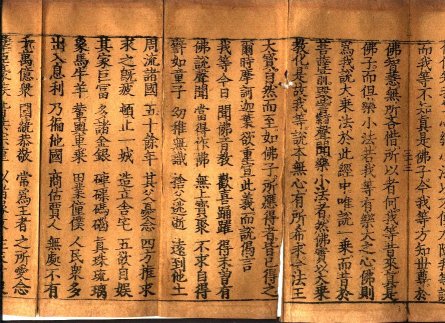 我等說而我等不知真是佛子今我等方知世尊於
佛智慧無所悋惜所以者何我等昔來真是
佛子而但樂小法若我等有樂大之心佛則
為我說大乘法於此經中唯說一乘而昔於
菩薩前毀呰聲聞樂小法者然佛實以大乘
教化是故我等說本無心有所希求今法王
大寶自然而至如佛子所應得者皆已得之
爾時摩訶迦葉欲重宣此義而說偈言
我等今日 聞佛音教 歡喜踊躍 得未曾有
佛說聲聞 當得作佛 無上寶聚 不求自得
譬如童子 幼稚無識 捨父逃逝 遠到他土
周流諸國 五十餘年 其父憂念 四方推求
求之既疲 頓止一城 造立舍宅 五欲自娛
其家巨富 多諸金銀 硨磲碼碯 真珠琉璃
象馬牛羊 輦輿車乘 田業僮僕 人民眾多
出入息利 乃遍他國 商估賈人 無處不有
千萬億眾 圍繞恭敬 常為王者 之所愛念
群臣豪族 皆共宗重